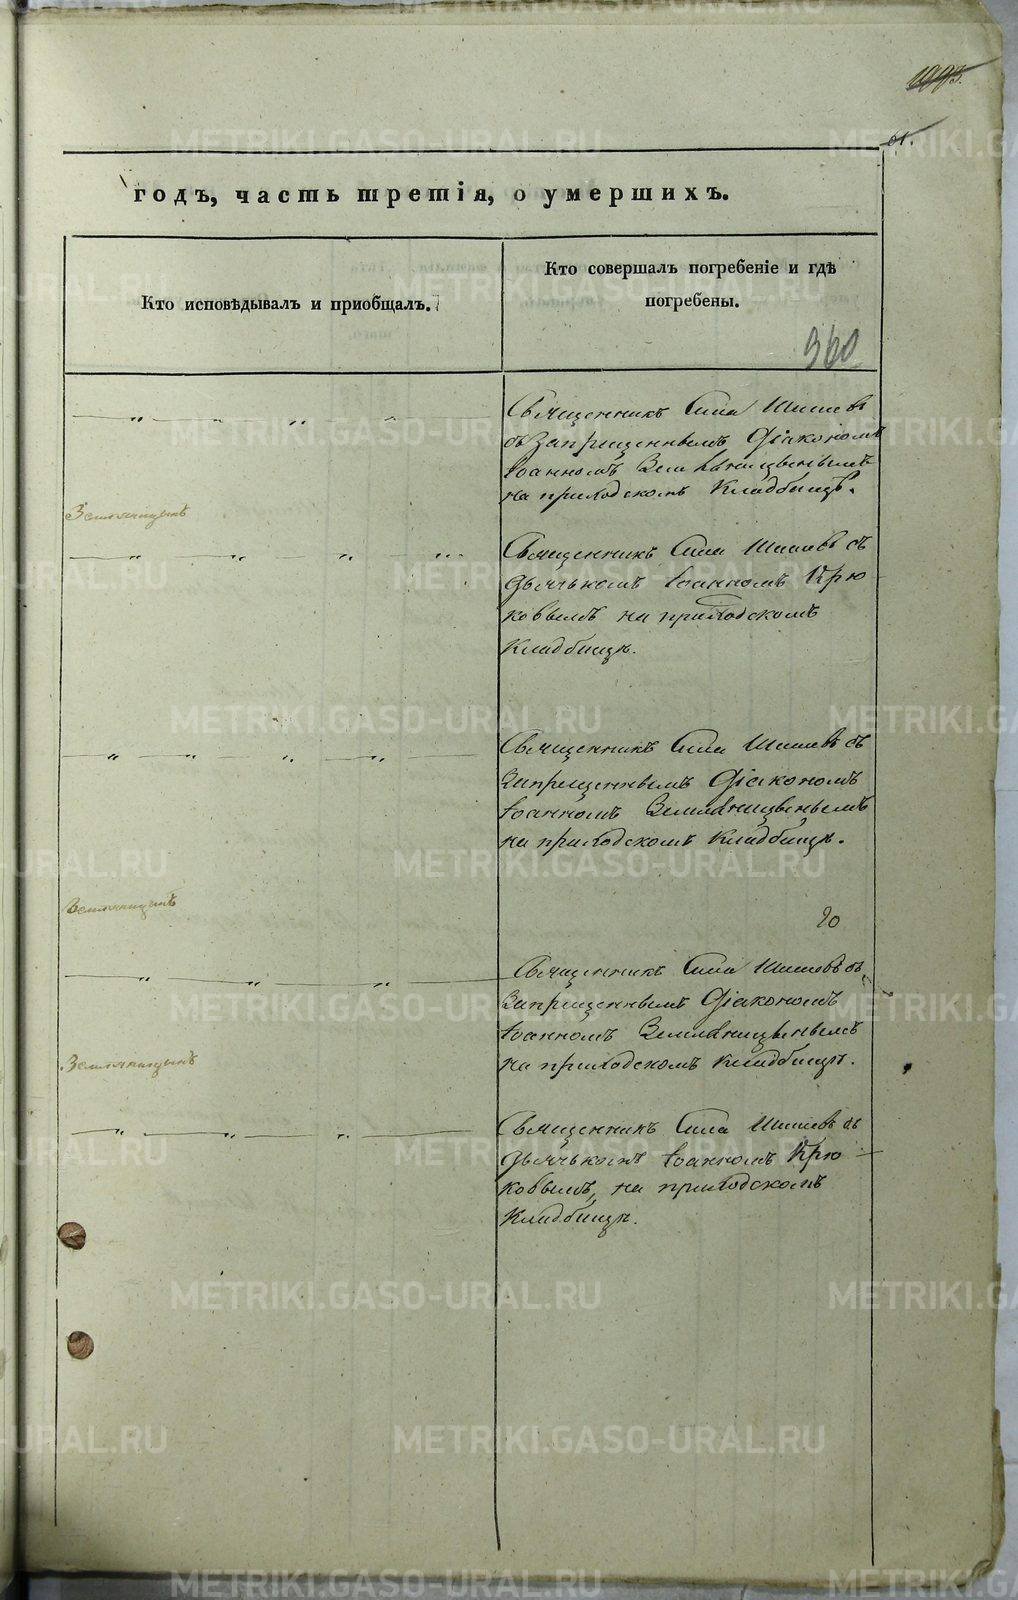 61.
годъ, часть третія, о умершихъ.
Кто исповѣдывалъ и приобщалъ.
Кто совершалъ погребеніе и гдѣ
погребены.
360
Священникъ Сила Шишевъ
съ запрещеннымъ Діакономъ
Іоанномъ Земляницынымъ
на приходскомъ Кладбищѣ.
Земляницынъ
Священникъ Сила Шишевъ съ
дьячькомъ Іоанномъ Крю
ковымъ на приходскомъ
Кладбищѣ.
Священникъ Сила Шишевъ съ
Запрещеннымъ Діакономъ
Іоанномъ Земляницынымъ
на приходскомъ Кладбищѣ.
Земляницынъ
20
Священникъ Сила Шишевъ съ
Запрещеннымъ Діакономъ
Іоанномъ Земляницынымъ
на приходскомъ Кладбищѣ.
Земляницынъ
Священникъ Сила Шишевъ съ
дьячькомъ Іоанномъ Крю
ковымъ, на приходскомъ
Кладбищѣ.
METRIKI.GASO-URAL.RU